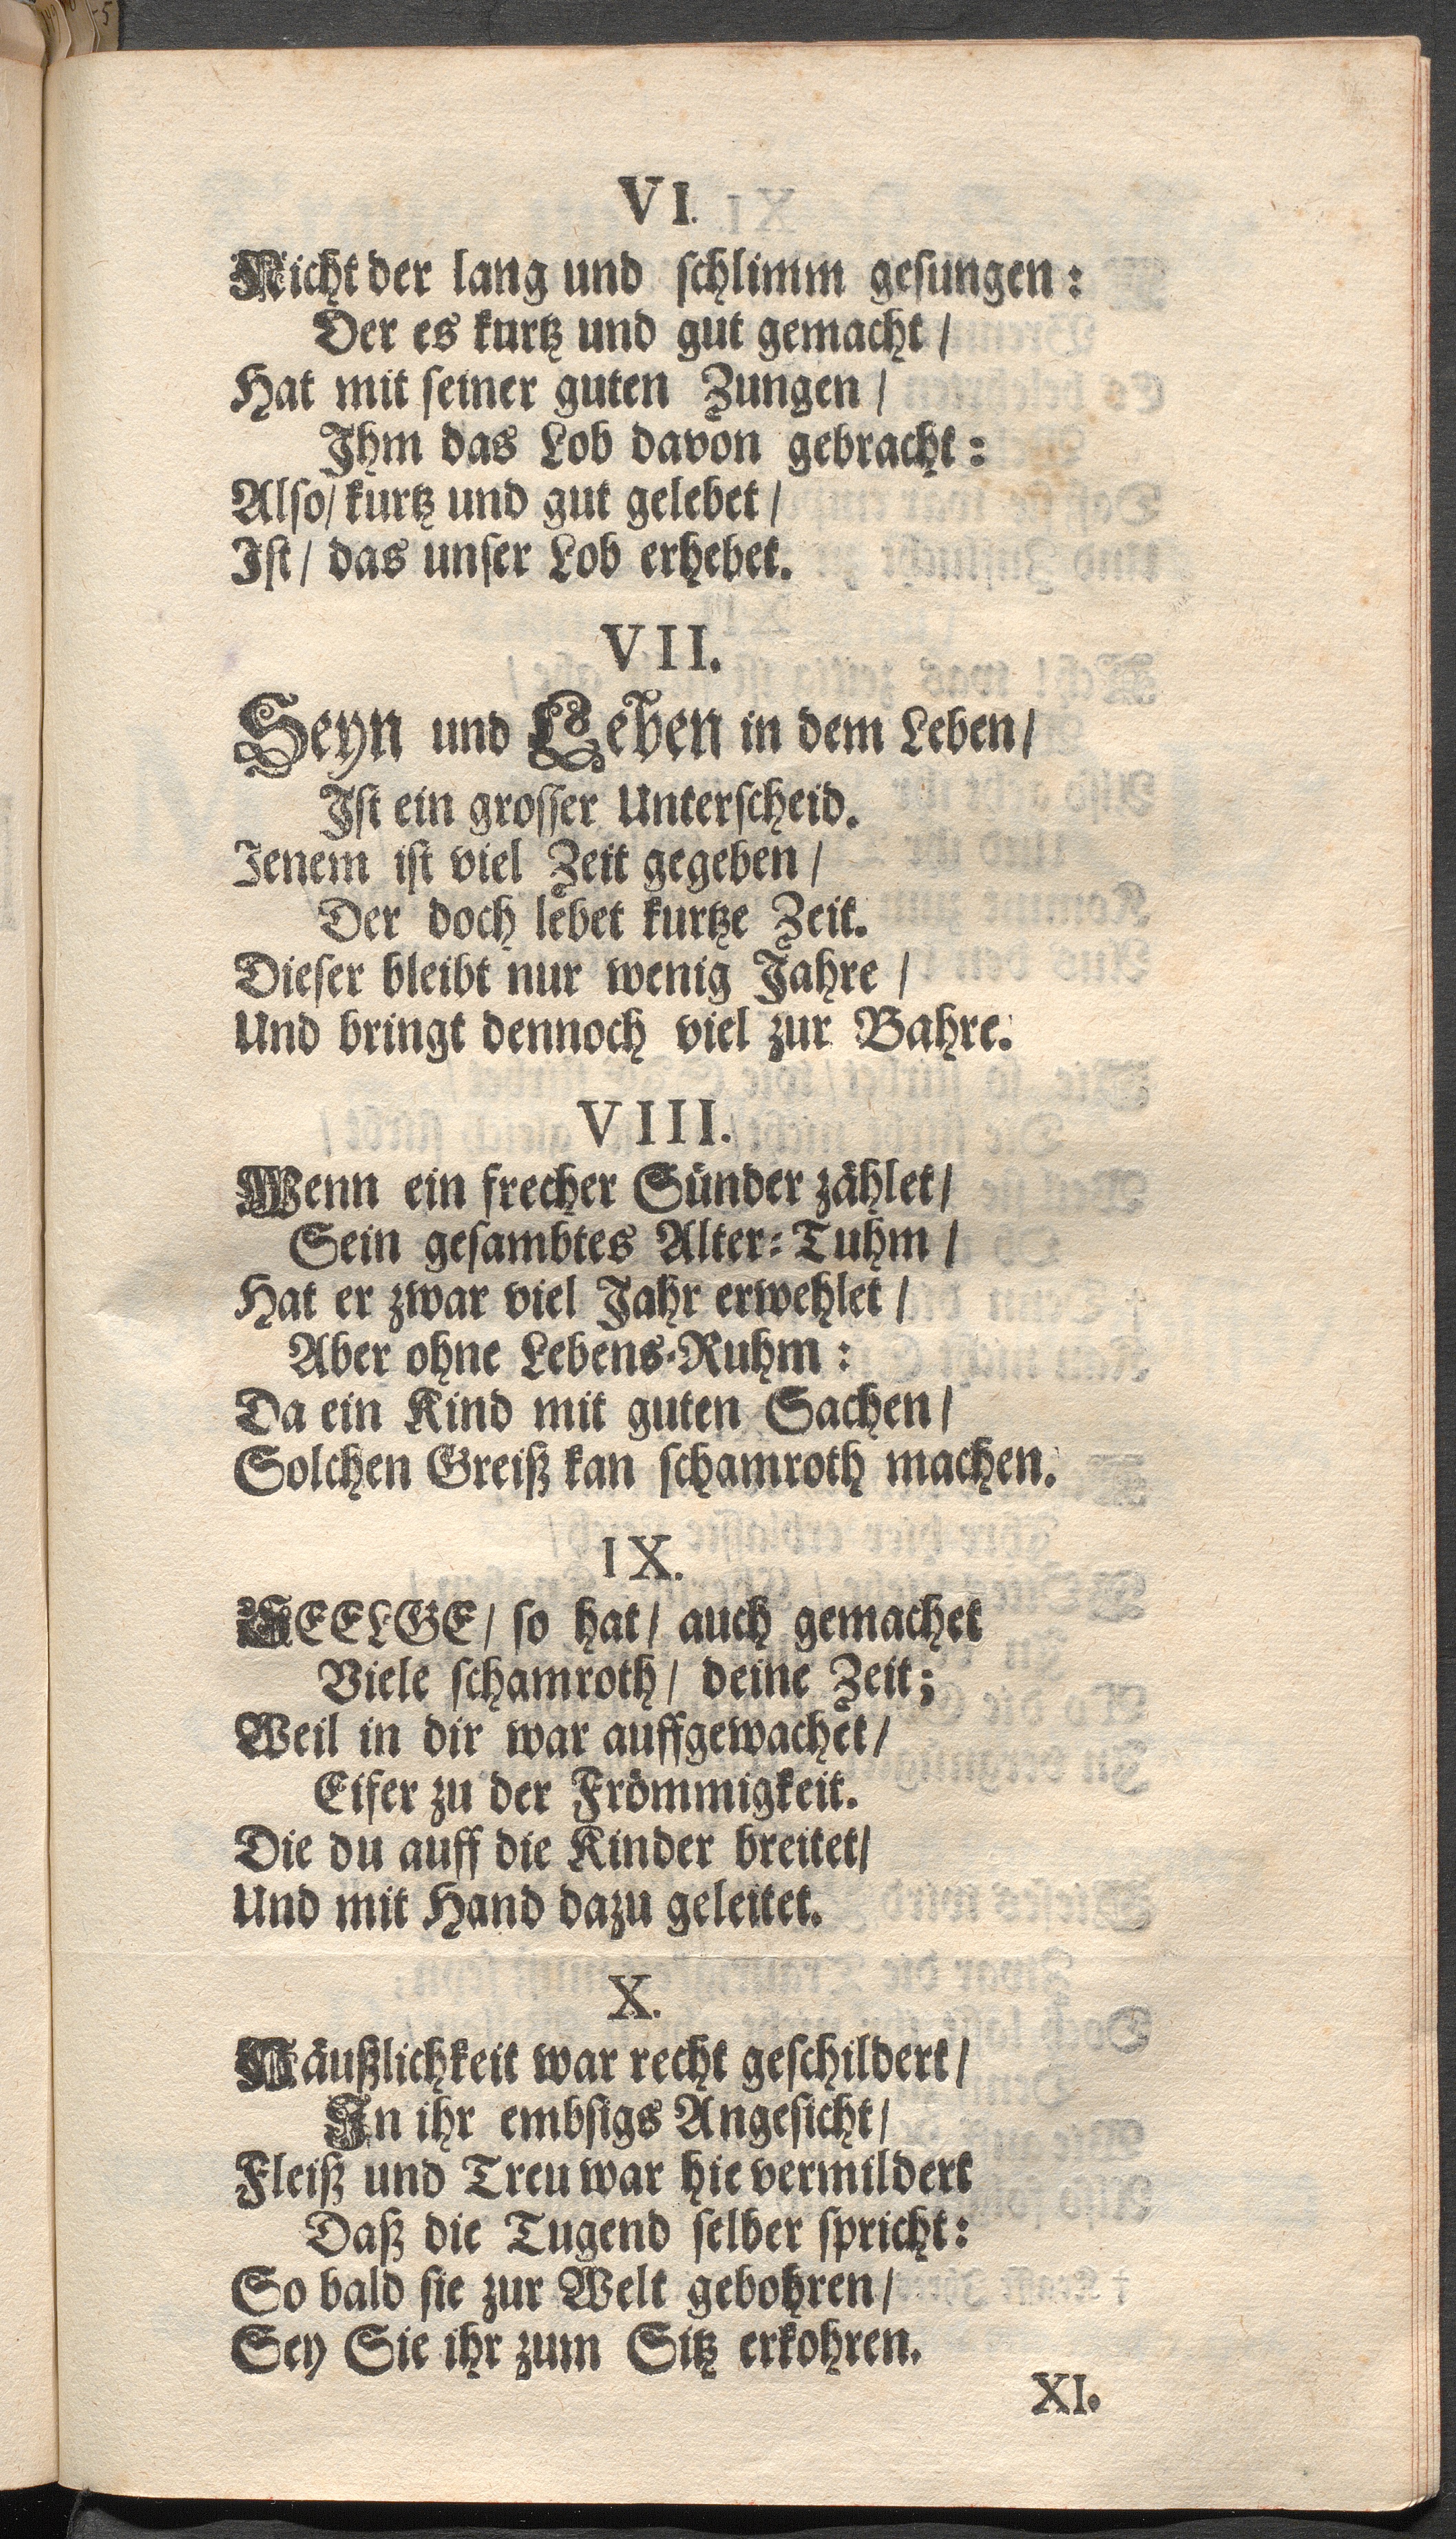 VI.
Nicht der lang und schlimm gesungen:
Der es kurtz und gut gemacht /
Hat mit seiner guten Zungen /
Ihm das Lob davon gebracht:
Also / kurtz und gut gelebet /
Ist / das unser Lob erhebet.
VII.
Seyn und Leben in dem Leben /
Ist ein grosser Unterscheid.
Jenem ist viel Zeit gegeben /
Der doch lebet kurtze Zeit.
Dieser bleibt nur wenig Jahre /
Und bringt dennoch viel zur Bahre.
VIII.
Wenn ein frecher Sünder zählet /
Sein gesambtes Alter-Tuhm /
Hat er zwar viel Jahr erwehlet /
Aber ohne Lebens-Ruhm:
Da ein Kind mit guten Sachen /
Solchen Greiß kan schamroth machen.
IX.
SEELGE / so hat / auch gemachet
Viele schamroth / deine Zeit;
Weil in dir war auffgewachet /
Eifer zu der Frömmigkeit.
Die du auff die Kinder breitet /
Und mit Hand dazu geleitet.
X.
Häußlichkeit war recht geschildert /
In ihr embsigs Angesicht /
Fleiß und Treu war hie vermildert
Daß die Tugend selber spricht:
So bald sie zur Welt gebohren /
Sey Sie ihr zum Sitz erkohren.
XI.